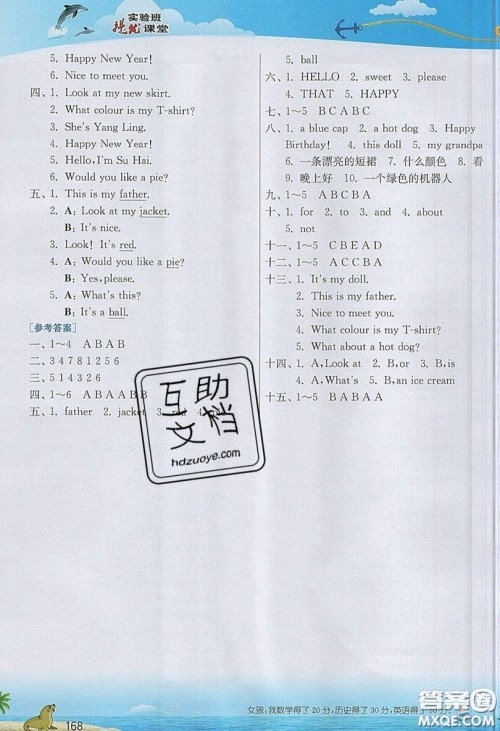 实验班
提优课堂
5. Happy New Year!
6. Nice to meet you.
四、1. Look at my new skirt.
2. What colour is my T-shirt?
3. She's Yang Ling.
4. Happy New Year!
5. Hello, I'm Su Hai.
6. Would you like a pie?
五、1. This is my father.
2. A: Look at my jacket.
B: It's nice.
3. Look! It's red.
4. A: Would you like a pie?
B: Yes, please.
5. A: What's this?
B: It's a ball.
[参考答案]
一、1~4 A B A B
二、3 4 7 8 1 2 5 6
三、5 1 4 3 2 6
四、1~6 A B A A B B
五、1. father 2. jacket 3. red 4.
5. ball
六、1. HELLO 2. sweet 3. please
4. THAT 5. HAPPY
七、1~5 B C A B C
八、1. a blue cap 2. a hot dog 3. Happy
Birthday! 4. this doll 5. my grandpa
6. 一条漂亮的短裙 7. 什么颜色 8. 看
9. 晚上好 10. 一个绿色的机器人
九、1~5 A B C B A
十、1. for 2. to 3. and 4. about
5. not
十一、1~5 C B E A D
十二、1~5 A C C B A
十三、1. It's my doll.
2. This is my father.
3. Nice to meet you.
4. What colour is my T-shirt?
5. What about a hot dog?
十四、1. A, Look at 2. B, or 3. B, is
4. A, What's 5. B, an ice cream
十五、1~5 B A B A A
互助
文档
hdzuoye.com
168
女孩,我数学得了20分,历史得了30分,英语得了50分,
答案圈
MXQE.COM